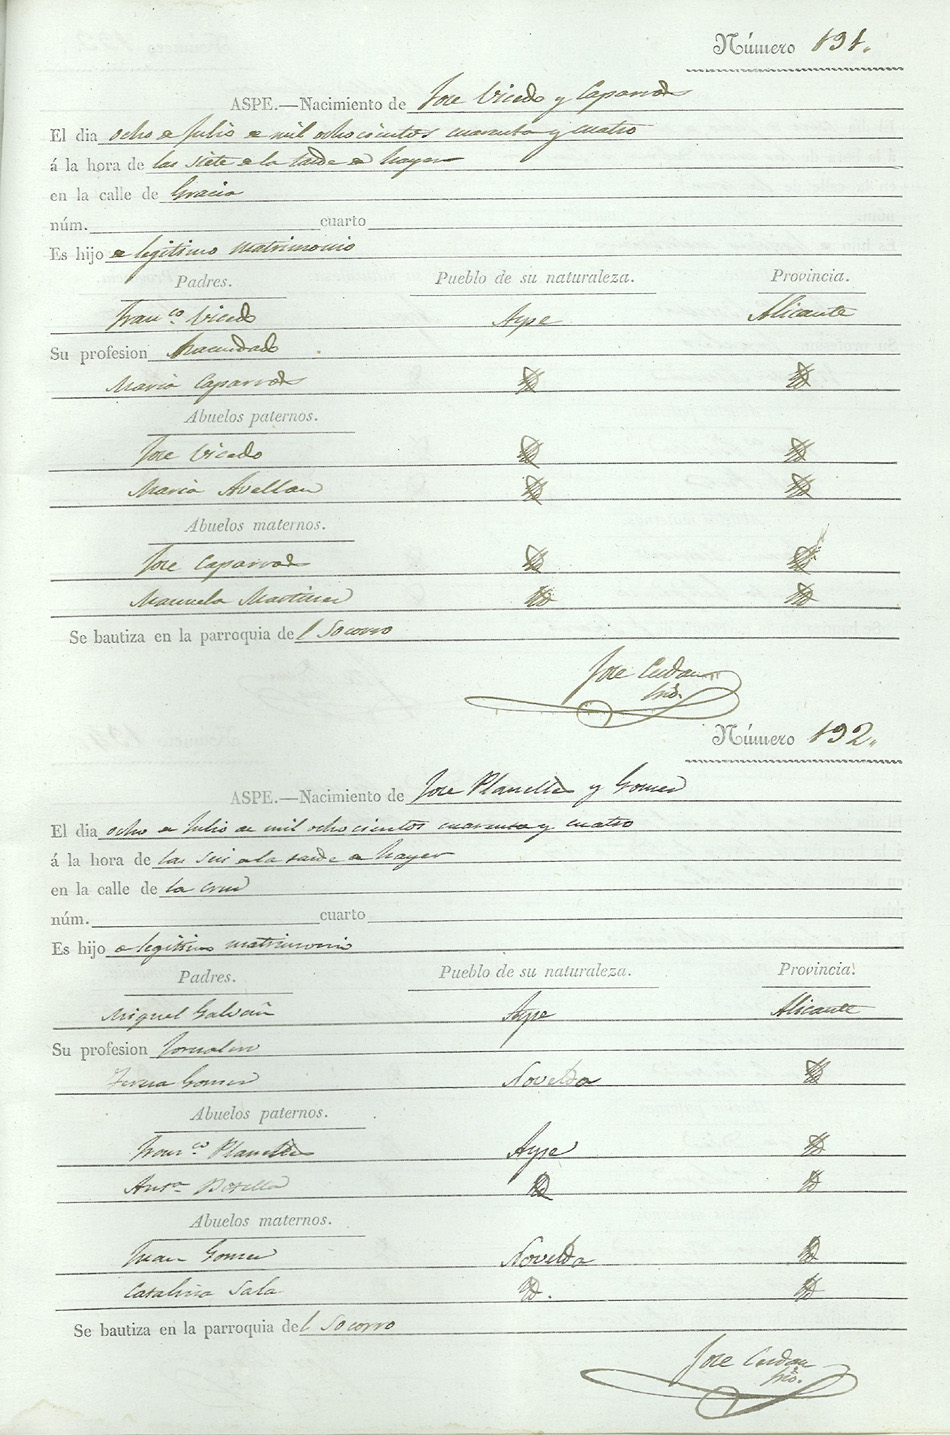 Número 191.
ASPE.—Nacimiento de Jose Vicedo y Caparros
El dia ocho de Julio de mil ochocientos cuarenta y cuatro
á la hora de las siete de la tarde de hayer
en la calle de Gracia
núm. cuarto
Es hijo de legitimo matrimonio
Padres. Pueblo de su naturaleza. Provincia.
Franco. Vicedo Aspe Alicante
Su profesion Hacendado
Maria Caparros Id Id
Abuelos paternos.
Jose Vicedo Id Id
Maria Avellan Id Id
Abuelos maternos.
Jose Caparros Id Id
Manuela Martinez Id Id
Se bautiza en la parroquia del Socorro
Jose
Número 192.
ASPE.—Nacimiento de Jose Planelles y Gomez
El dia ocho de Julio de mil ochocientos cuarenta y cuatro
á la hora de las seis de la tarde de hayer
en la calle de la cruz
núm. cuarto
Es hijo de legitimo matrimonio
Padres. Pueblo de su naturaleza. Provincia.
Miguel Galvañ Aspe Alicante
Su profesion Jornalero
Gomez Novelda Id
Abuelos paternos.
Franco. Planelles Aspe Id
Anta. Botella Id Id
Abuelos maternos.
Juan Gomez Novelda Id
Catalina Sala Id. Id
Se bautiza en la parroquia del Socorro
Jose